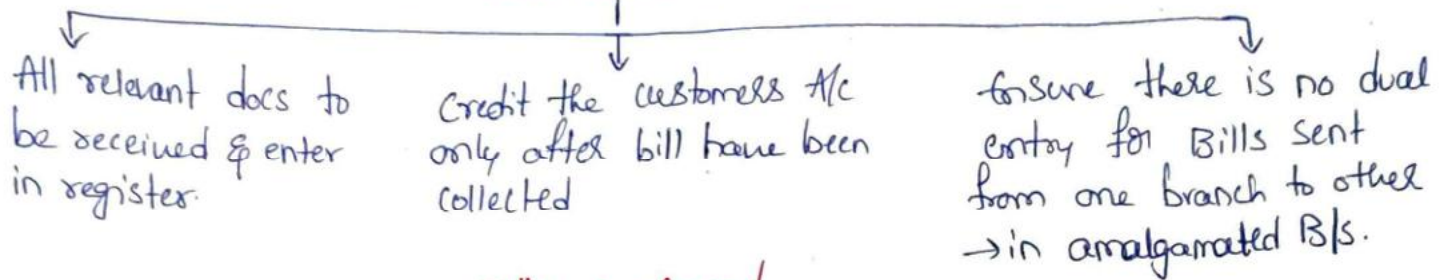 All relevant docs to
be received & enter
in register.
Credit the customers A/c
only after bill have been
collected
Ensure there is no dual
entry for Bills sent
from one branch to other
→in amalgamated B/s.